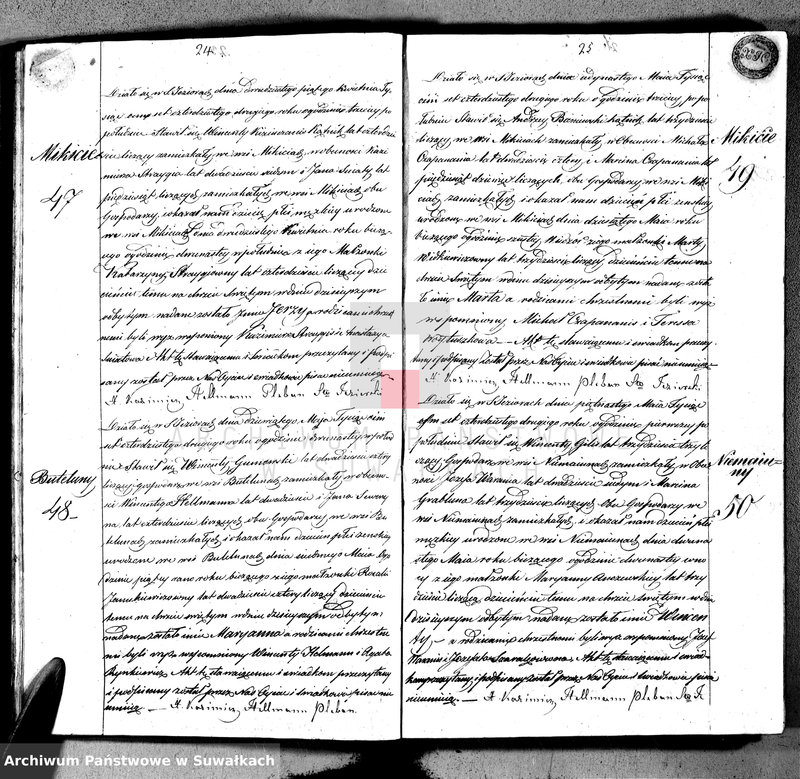 24
Mikicie
47
Działo się w Jeziorach dnia dwudziestego piątego Kwietnia Ty-
set czterdziestego drugiego roku o godzinie trzeciej po
południu Stawił się Wincenty lat czterdzie-
ści liczący zamieszkały we wsi Mikiciach w obecności Kazi-
mierza Strzygia lat dwadzieścia i Jana Swiaty lat
pięćdziesiąt liczących zamieszkałych we wsi Mikiciach obu
Gospodarzy, i okazał nam dziecię płci męzkiej urodzone
we wsi Mikiciach dnia dwudziestego Kwietnia roku bieżą-
cego o godzinie dwunastej w południe z jego Małżonki
Katarzyny lat czterdzieści liczącej dzie-
cięciu temu na chrzcie świętym w dniu dzisiejszym
odbytym nadane zostało imię Jerzy a rodzicami chrzest-
nemi byli wyż wspomniony Kazimierz i Anastazya
Akt ten Stawiącemu i świadkom przeczytany i podpi-
sany został przez Nas Ojciec i świadkowie pisać nieumieją
X. Kazimierz Hellmann Pleban
Buteluny
48
Działo się w Jeziorach dnia dziewiątego Maja Tysiąc ośm
set czterdziestego drugiego roku o godzinie dwunastej w połud-
nie Stawił się Wincenty lat dwadzieścia cztery
liczący gospodarz we wsi Butelunach zamieszkały w obecno-
ści Wincentego Hellmanna lat dwadzieścia i Jana
lat czterdzieści liczących obu Gospodarzy we wsi Bu-
telunach zamieszkałych i okazał nam dziecię płci żeńskiej
urodzone we wsi Butelunach dnia siódmego Maja o go-
dzinie piątej rano roku bieżącego z jego małżonki Rozalii
lat dwadzieścia cztery liczącej dziecięciu
temu na chrzcie świętym w dniu dzisiejszym odbytym
nadane zostało imię Maryanna a rodzicami chrzestne-
mi byli wyż wspomniony Wincenty Helmann i Agata
Akt ten stawiącemu i świadkom przeczytany
i podpisany został przez Nas Ojciec i świadkowie pisać nie
umieją — X. Kazimierz Hellmann Pleban
25
Mikicie
49
Działo się w Jeziorach dnia jedynastego Maja Tysiąc
set czterdziestego drugiego roku o godzinie trzeciej po po-
łudniu Stawił się Andrzej lat trzydzieści
liczący we wsi Mikiciach zamieszkały w Obecności Michała
Czapanania lat dwadzieścia cztery i Marcina Czapanania lat
pięćdziesiąt liczących, obu Gospodarzy we wsi Miki-
ciach zamieszkałych i okazał nam dziecię płci żeńskiej
urodzone we wsi Mikiciach dnia dziesiątego Maja roku
bieżącego o godzinie szóstej wieczór z jego małżonki Marty
lat trzydzieści liczącej dziecięciu temu na
chrzcie świętym w dniu dzisiejszym odbytym nadane zosta-
ło imię Marta a rodzicami chrzestnemi byli wyż
wspomniony Michał Czapananis i Teresa
Akt ten stawiącemu i świadkom przeczy-
tany i podpisany został przez Nas Ojciec i świadkowie pisać nieumieją
X. Kazimierz Hellmann Pleban
Niemaiu-
ny
50
Działo się w Jeziorach dnia piętnastego Maja Tysiąc
ośm set czterdziestego drugiego roku o godzinie pierwszej po
południu Stawił się Wincenty lat trzydzieści trzy li-
czący Gospodarz we wsi Niemaiunach zamieszkały w obe-
cności Józefa lat dwadzieścia siedm i Marcina
lat trzydzieści liczących Obu Gospodarzy we
wsi Niemaiunach zamieszkałych i okazał nam dziecię płci
męzkiej urodzone we wsi Niemaiunach dnia dwuna-
stego Maja roku bieżącego o godzinie dwunastej w no-
cy z jego małżonki Maryanny lat trzy-
dzieści liczącej dziecięciu temu na chrzcie świętym w dniu
dzisiejszym odbytym nadane zostało imię Wincen-
ty — a rodzicami chrzestnemi byli wyż wspomniony Józef
i Józefata Akt ten stawiącemu i świad-
kom przeczytany i podpisany został przez Nas Ojciec i świadkowie pisać
nieumieją — X. Kazimierz Hellmann Pleban
ARCHIWUM PAŃSTWOWE
W SUWAŁKACH
Archiwum Państwowe w Suwałkach